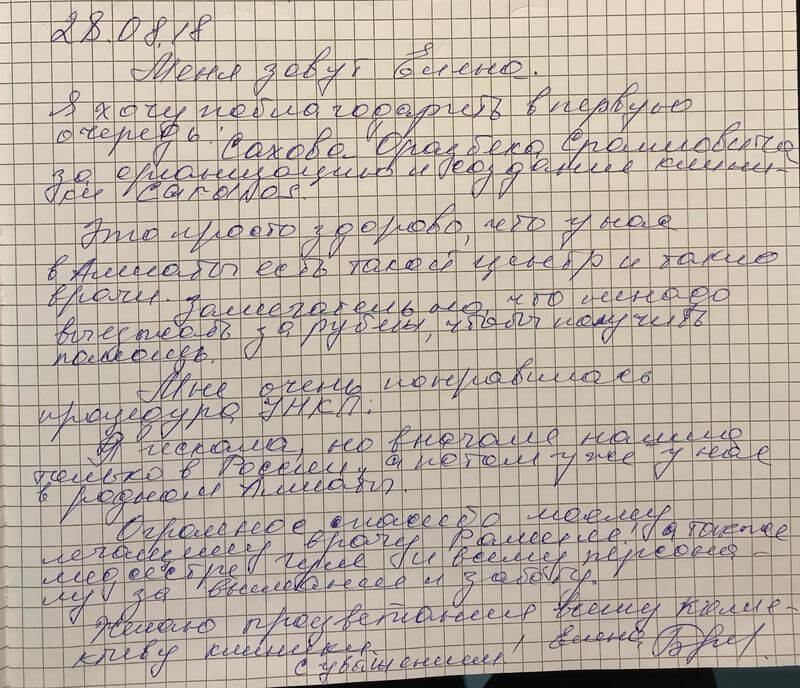 28.08.18
Меня зовут Елена.
Я хочу поблагодарить в первую
очередь:
Сахова Оразбека Спаиловича
за организацию и создание клини-
ки
Это просто здорово, что у нас
в Алматы есть такой центр и такие
врачи. Замечательно, что ненадо
выезжать за рубеж, чтобы получить
помощь.
Мне очень понравилась
процедура УНКП.
Я искала, но вначале нашла
только в России, а потом уже у нас
в родном Алматы.
Огромное спасибо моему
лечащему врачу а также
медсестре и всему персона-
лу за внимание и заботу.
Желаю процветания всему коллек-
тиву клиники.
С уважением, Елена